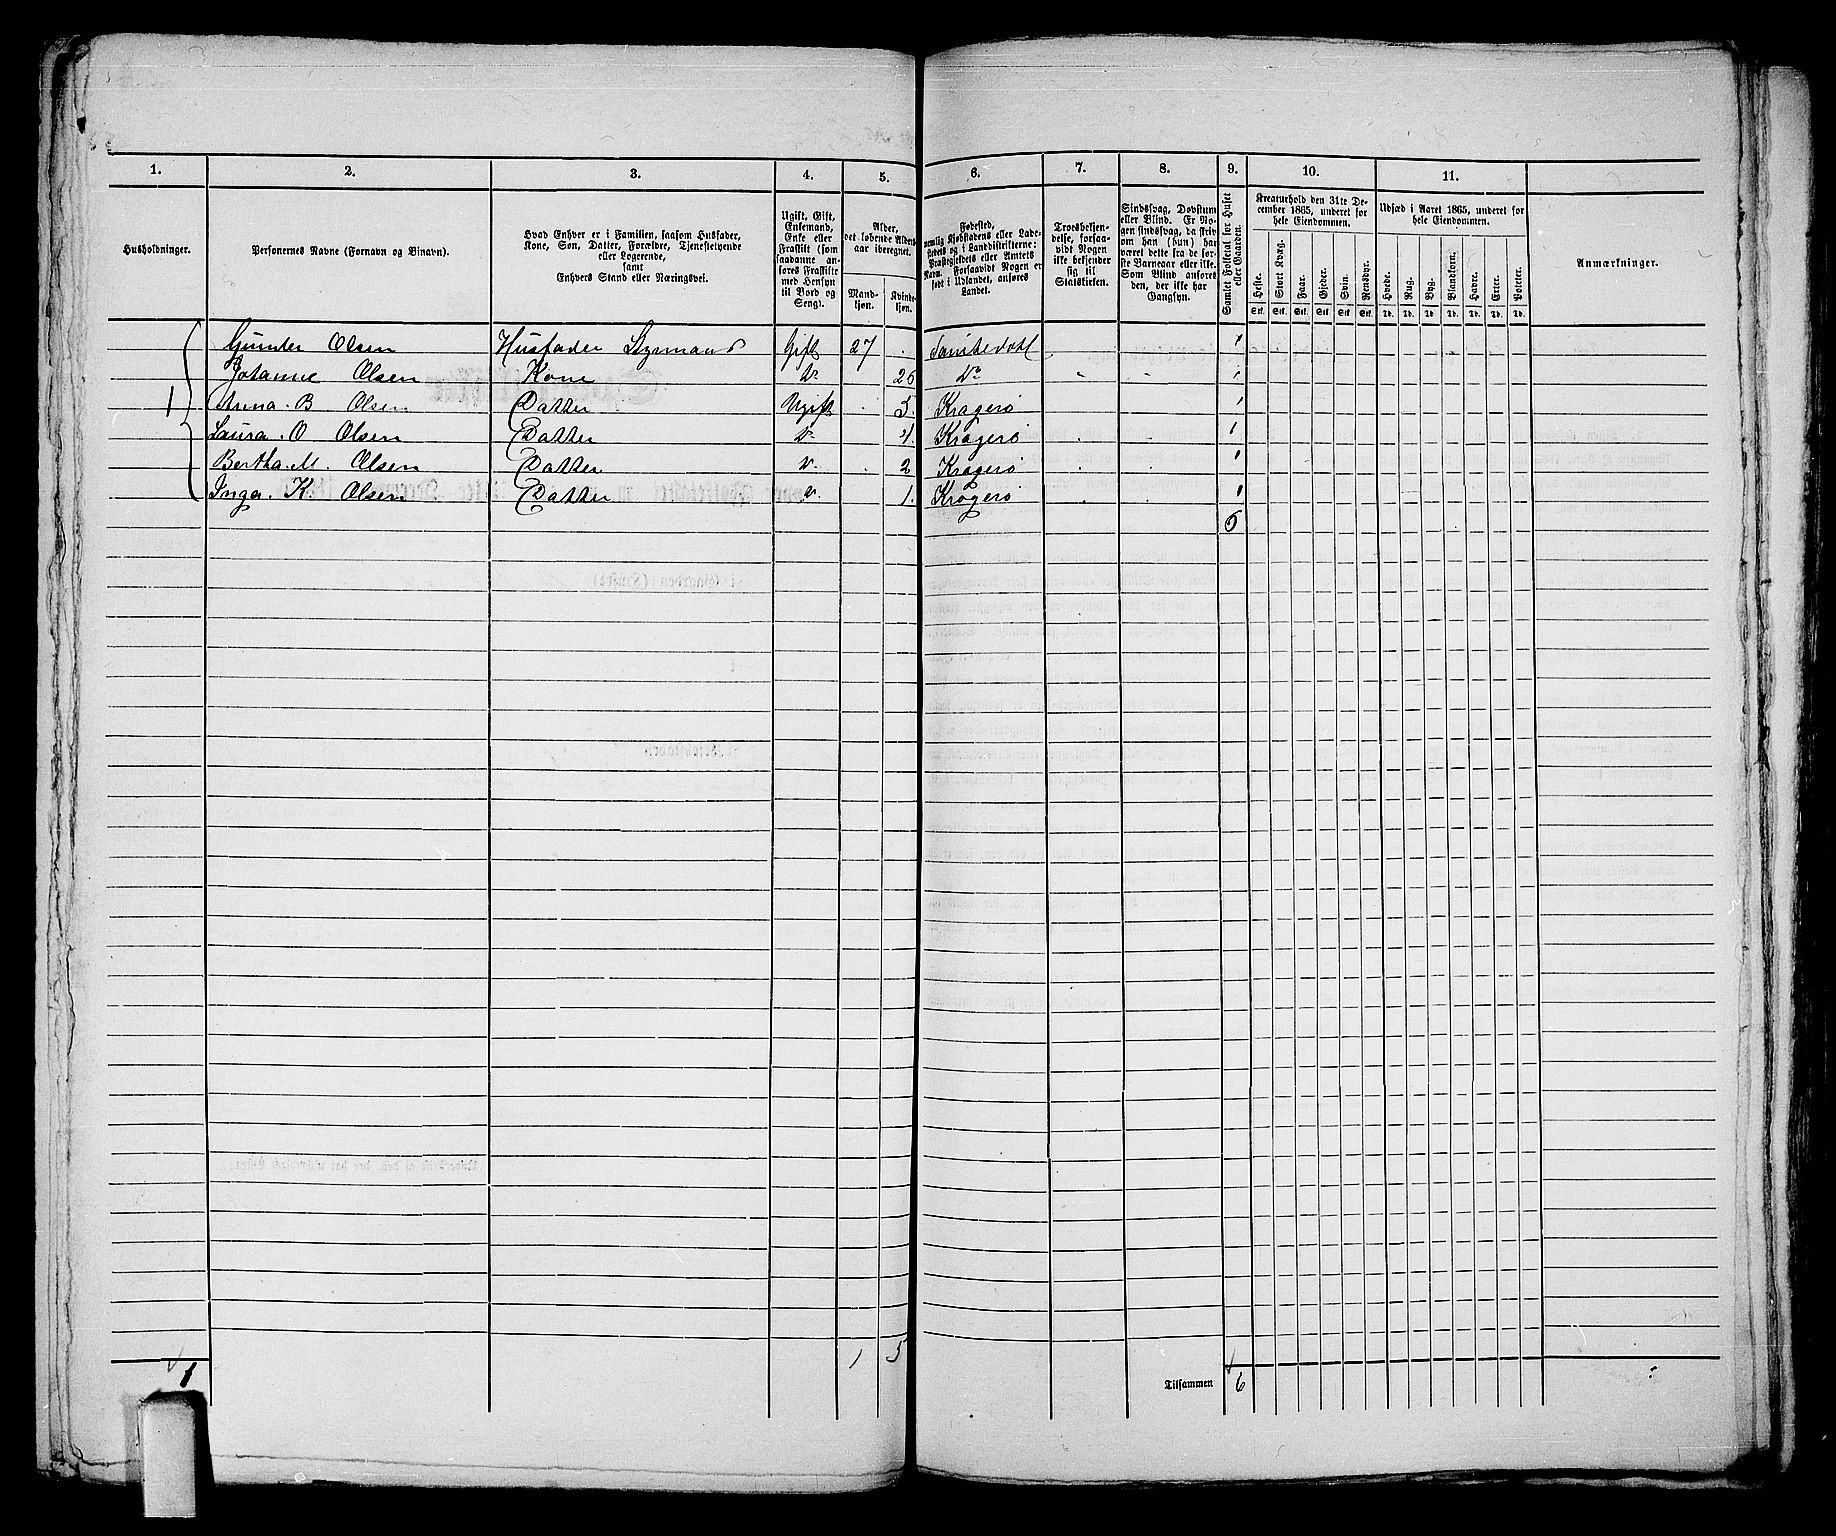 1. 2. 3. 4. 5. 6. 7. 8. 9. 10. 11.
Husholdninger.
Personernes Navne (Fornavn og Binavn).
Hvad Enhver er i Familien, saasom Husfader,
Kone, Søn, Datter, Forældre, Tjenestetyende
eller Logerende,
samt
Enhvers Stand eller Næringsvei.
Ugift, Gift,
Enkemand,
Enke eller
Fraskilt (som
saadanne an-
føres Fraskilte
med Hensyn
til Bord og
Seng).
Alder,
det løbende Alders-
aar iberegnet.
Mand-
kjøn.
Kvinde-
kjøn.
Fødested,
nemlig Kjøbstadens eller Lade-
stedets og i Landdistrikterne:
Præstegjeldets eller Amtets
Navn. Forsaavidt Nogen er
født i Udlandet, anføres
Landet.
Troesbekjen-
delse, forsaa-
vidt Nogen
ikke bekjender
sig til
Statskirken.
Sindssvag, Døvstum
eller Blind. Er No-
gen sindssvag, da skriv
om han (hun) har
været dette fra de før-
ste Barneaar eller ikke.
Som Blind anføres
den, der ikke har
Gangsyn.
Samlet Folketal for Huset
eller Gaarden.
Kreaturhold den 31te De-
cember 1865, underet for
hele Eiendommen.
Heste. Stort Kvæg. Faar. Gjeder. Svin. Rensdyr.
Stk. Stk. Stk. Stk. Stk. Stk.
Udsæd i Aaret 1865, underet for
hele Eiendommen.
Hvede. Rug. Byg. Blandkorn. Havre. Erter. Poteter.
Td. Td. Td. Td. Td. Td. Td.
Anmærkninger.
Gunder Olsen Husfader Styrmand Gift 27 . Sanikedahl 1
Johanne Olsen Kone Do 26 Do 1
1 Anna. B Olsen Datter Ugift . 5. Kragerø 1
Laura. O Olsen Datter Do 4. Kragerø 1
Bertha. M. Olsen Datter Do . 2 Kragerø 1
Inga. K. Olsen Datter Do 1. Kragerø 1
6
1 1 5 Tilsammen 6